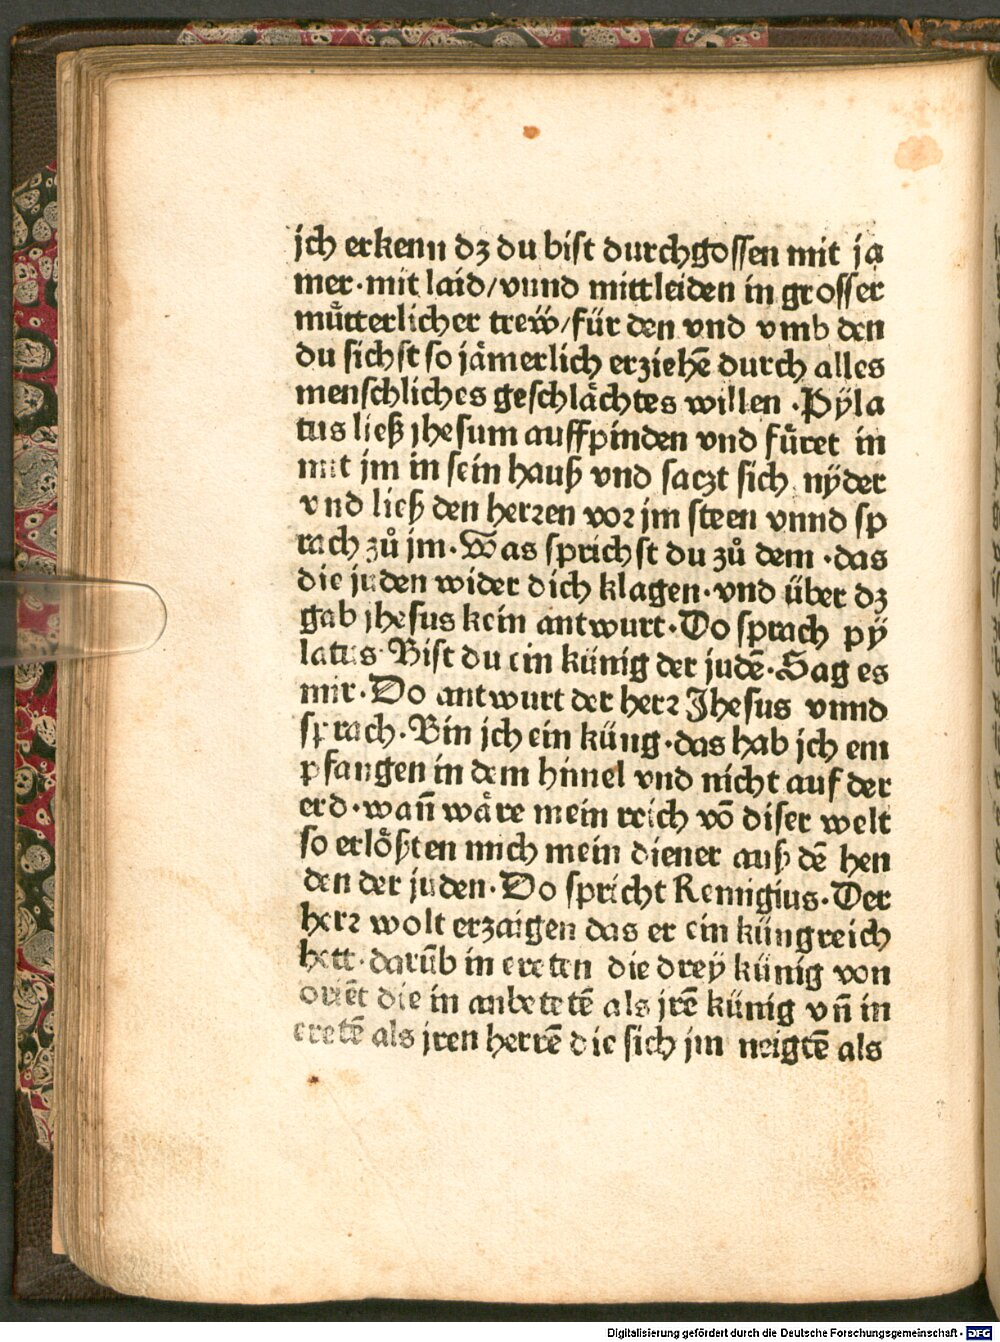 jch erkenn dz du bist durchgossen mit ja
mer·mit laid/vnnd mittleiden in grosser
mu̇tterlicher trew̎/für den vnd vmb den
du sichst so jämerlich erziehē durch alles
menschliches geschlächtes willen ·Pÿla
tus ließ jhesum auffpinden vnd fu̇ret in
mit jm in sein hauß vnd saczt sich nÿder
vnd ließ den herren vor jm steen vnnd sp
rach zů jm·Was sprichst du zů dem ·das
die juden wider dich klagen·vnd über dz
gab jhesus kein antwurt·Do sprach pÿ
latus·Bist du ein künig der judē·Sag es
mir·Do antwurt der herr Jhesus vnnd
sprach·Bin jch ein küng·das hab jch em
pfangen in dem himel vnd nicht auf der
erd·wañ wäre mein reich vō diser welt
so erlößten mich mein diener auß dē hen
den der juden·Do spricht Remigius·Der
herr wolt erzaigen das er ein küngreich
hett·darūb in ereten die dreÿ künig von
oriēt die in anbetetē als jrē künig vñ in
eretē als jren herrē die sich jm neigtē als
Digitalisierung gefördert durch die Deutsche Forschungsgemeinschaft - DFG